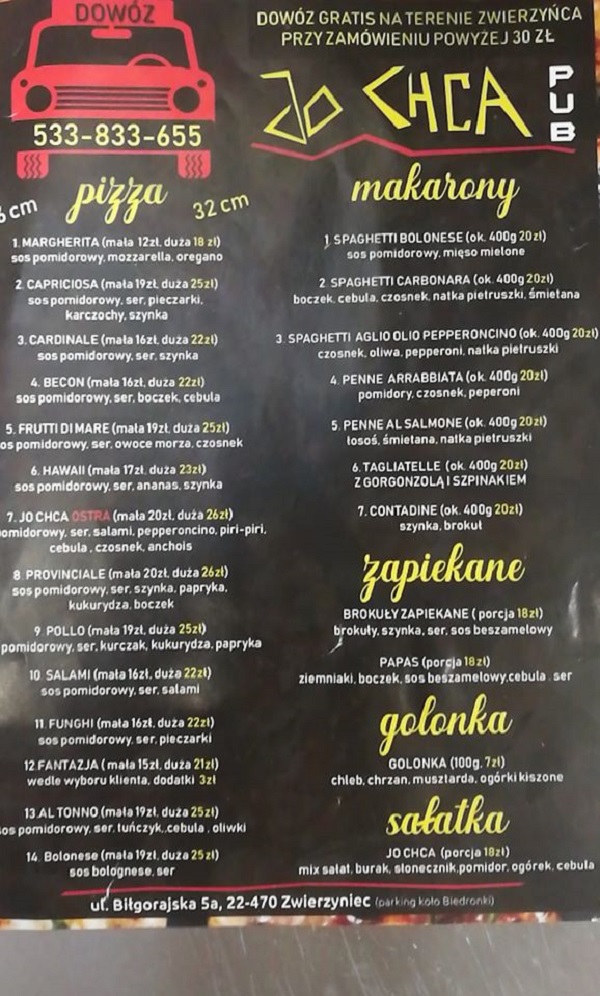 DOWÓZ
533-833-655
DOWÓZ GRATIS NA TERENIE ZWIERZYŃCA
PRZY ZAMÓWIENIU POWYŻEJ 30 ZŁ
JO CHCA PUB
pizza
cm 32 cm
1. MARGHERITA (mała 12zł, duża 18 zł)
sos pomidorowy, mozzarella, oregano
2. CAPRICIOSA (mała 19zł, duża 25zł)
sos pomidorowy, ser, pieczarki,
karczochy, szynka
3. CARDINALE (mała 16zł, duża 22zł)
sos pomidorowy, ser, szynka
4. BECON (mała 16zł, duża 22zł)
sos pomidorowy, ser, boczek, cebula
5. FRUTTI DI MARE (mała 19zł, duża 25zł)
os pomidorowy, ser, owoce morza, czosnek
6. HAWAII (mała 17zł, duża 23zł)
sos pomidorowy, ser, ananas, szynka
7. JO CHCA OSTRA (mała 20zł, duża 26zł)
omidorowy, ser, salami, pepperoncino, piri-piri,
cebula , czosnek, anchois
8. PROVINCIALE (mała 20zł, duża 26zł)
sos pomidorowy, ser, szynka, papryka,
kukurydza, boczek
9. POLLO (mała 19zł, duża 25zł)
pomidorowy, ser, kurczak, kukurydza, papryka
10. SALAMI (mała 16zł, duża 22zł)
sos pomidorowy, ser, salami
11. FUNGHI (mała 16zł, duża 22zł)
sos pomidorowy, ser, pieczarki
12.FANTAZJA (mała 15zł, duża 21zł)
wedle wyboru klienta, dodatki 3zł
13.AL TONNO,(mała 19zł, duża 25zł)
os pomidorowy, ser, tuńczyk,.cebula , oliwki
14. Bolonese (mała 19zł, duża 25zł)
sos bolognese, ser
makarony
1. SPAGHETTI BOLONESE (ok. 400g 20zł)
sos pomidorowy, mięso mielone
2. SPAGHETTI CARBONARA (ok. 400g 20zł)
boczek, cebula, czosnek, natka pietruszki, śmietana
3. SPAGHETTI AGLIO OLIO PEPPERONCINO (ok. 400g 20zł)
czosnek, oliwa, pepperoni, natka pietruszki
4. PENNE ARRABBIATA (ok. 400g 20zł)
pomidory, czosnek, peperoni
5. PENNE AL SALMONE (ok. 400g 20zł)
łosoś, śmietana, natka pietruszki
6. TAGLIATELLE (ok. 400g 20zł)
Z GORGONZOLĄ I SZPINAKIEM
7. CONTADINE (ok. 400g 20zł)
szynka, brokuł
zapiekane
BROKUŁY ZAPIEKANE ( porcja 18zł)
brokuły, szynka, ser, sos beszamelowy
PAPAS (porcja 18zł)
ziemniaki, boczek, sos beszamelowy,cebula . ser
golonka
GOLONKA (100g, 7zł)
chleb, chrzan, musztarda, ogórki kiszone
sałatka
JO CHCA (porcja 18zł)
mix sałat, burak, słonecznik,pomidor, ogórek, cebula
ul. Biłgorajska 5a, 22-470 Zwierzyniec (parking koło Biedronki)